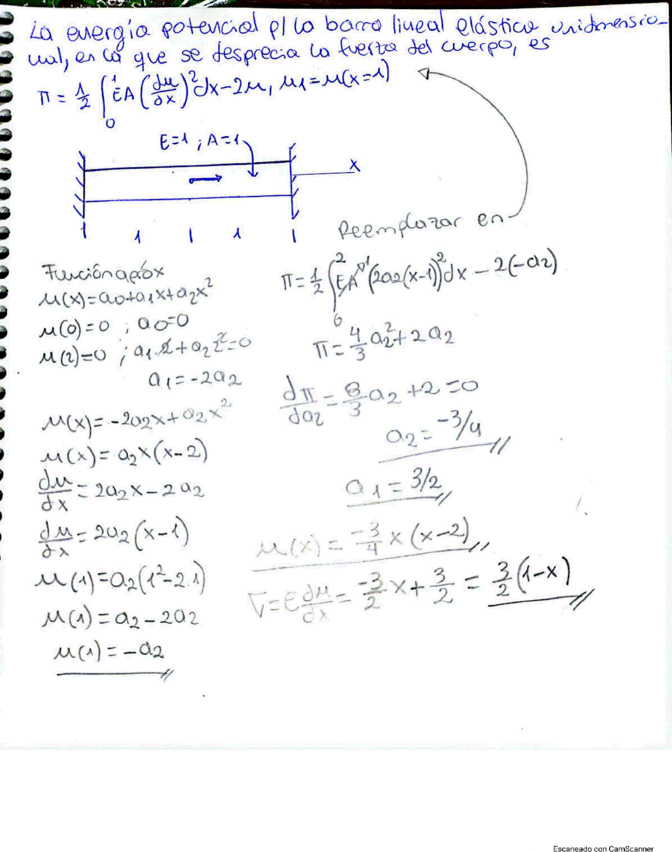 La energía potencial p/ la barra lineal elástica unidimensio-
nal, en la que se desprecia la fuerza del cuerpo, es
π = 1/2 ∫₀¹ EA (du/dx)² dx - 2u, u1 = u(x=1)
E=1 ; A=1
x
1 1 1 1 1
Reemplazar en
Función apróx
u(x) = a0+a1x+a2x²
u(0)=0 ; a0=0
u(2)=0 ; a1.2+a2 2²=0
a1=-2a2
u(x)=-2a2x+a2x²
u(x)=a2x(x-2)
du/dx = 2a2x-2a2
du/dx = 2a2(x-1)
u(1)=a2(1²-2.1)
u(1)=a2-2a2
u(1)=-a2
π = 1/2 ∫₀² EA¹ (2a2(x-1))² dx - 2(-a2)
π = 4/3 a2² + 2a2
dπ/da2 = 8/3 a2 + 2 = 0
a2 = -3/4
a1 = 3/2
u(x) = -3/4 x (x-2)
∇ = E du/dx = -3/2 x + 3/2 = 3/2 (1-x)
Escaneado con CamScanner